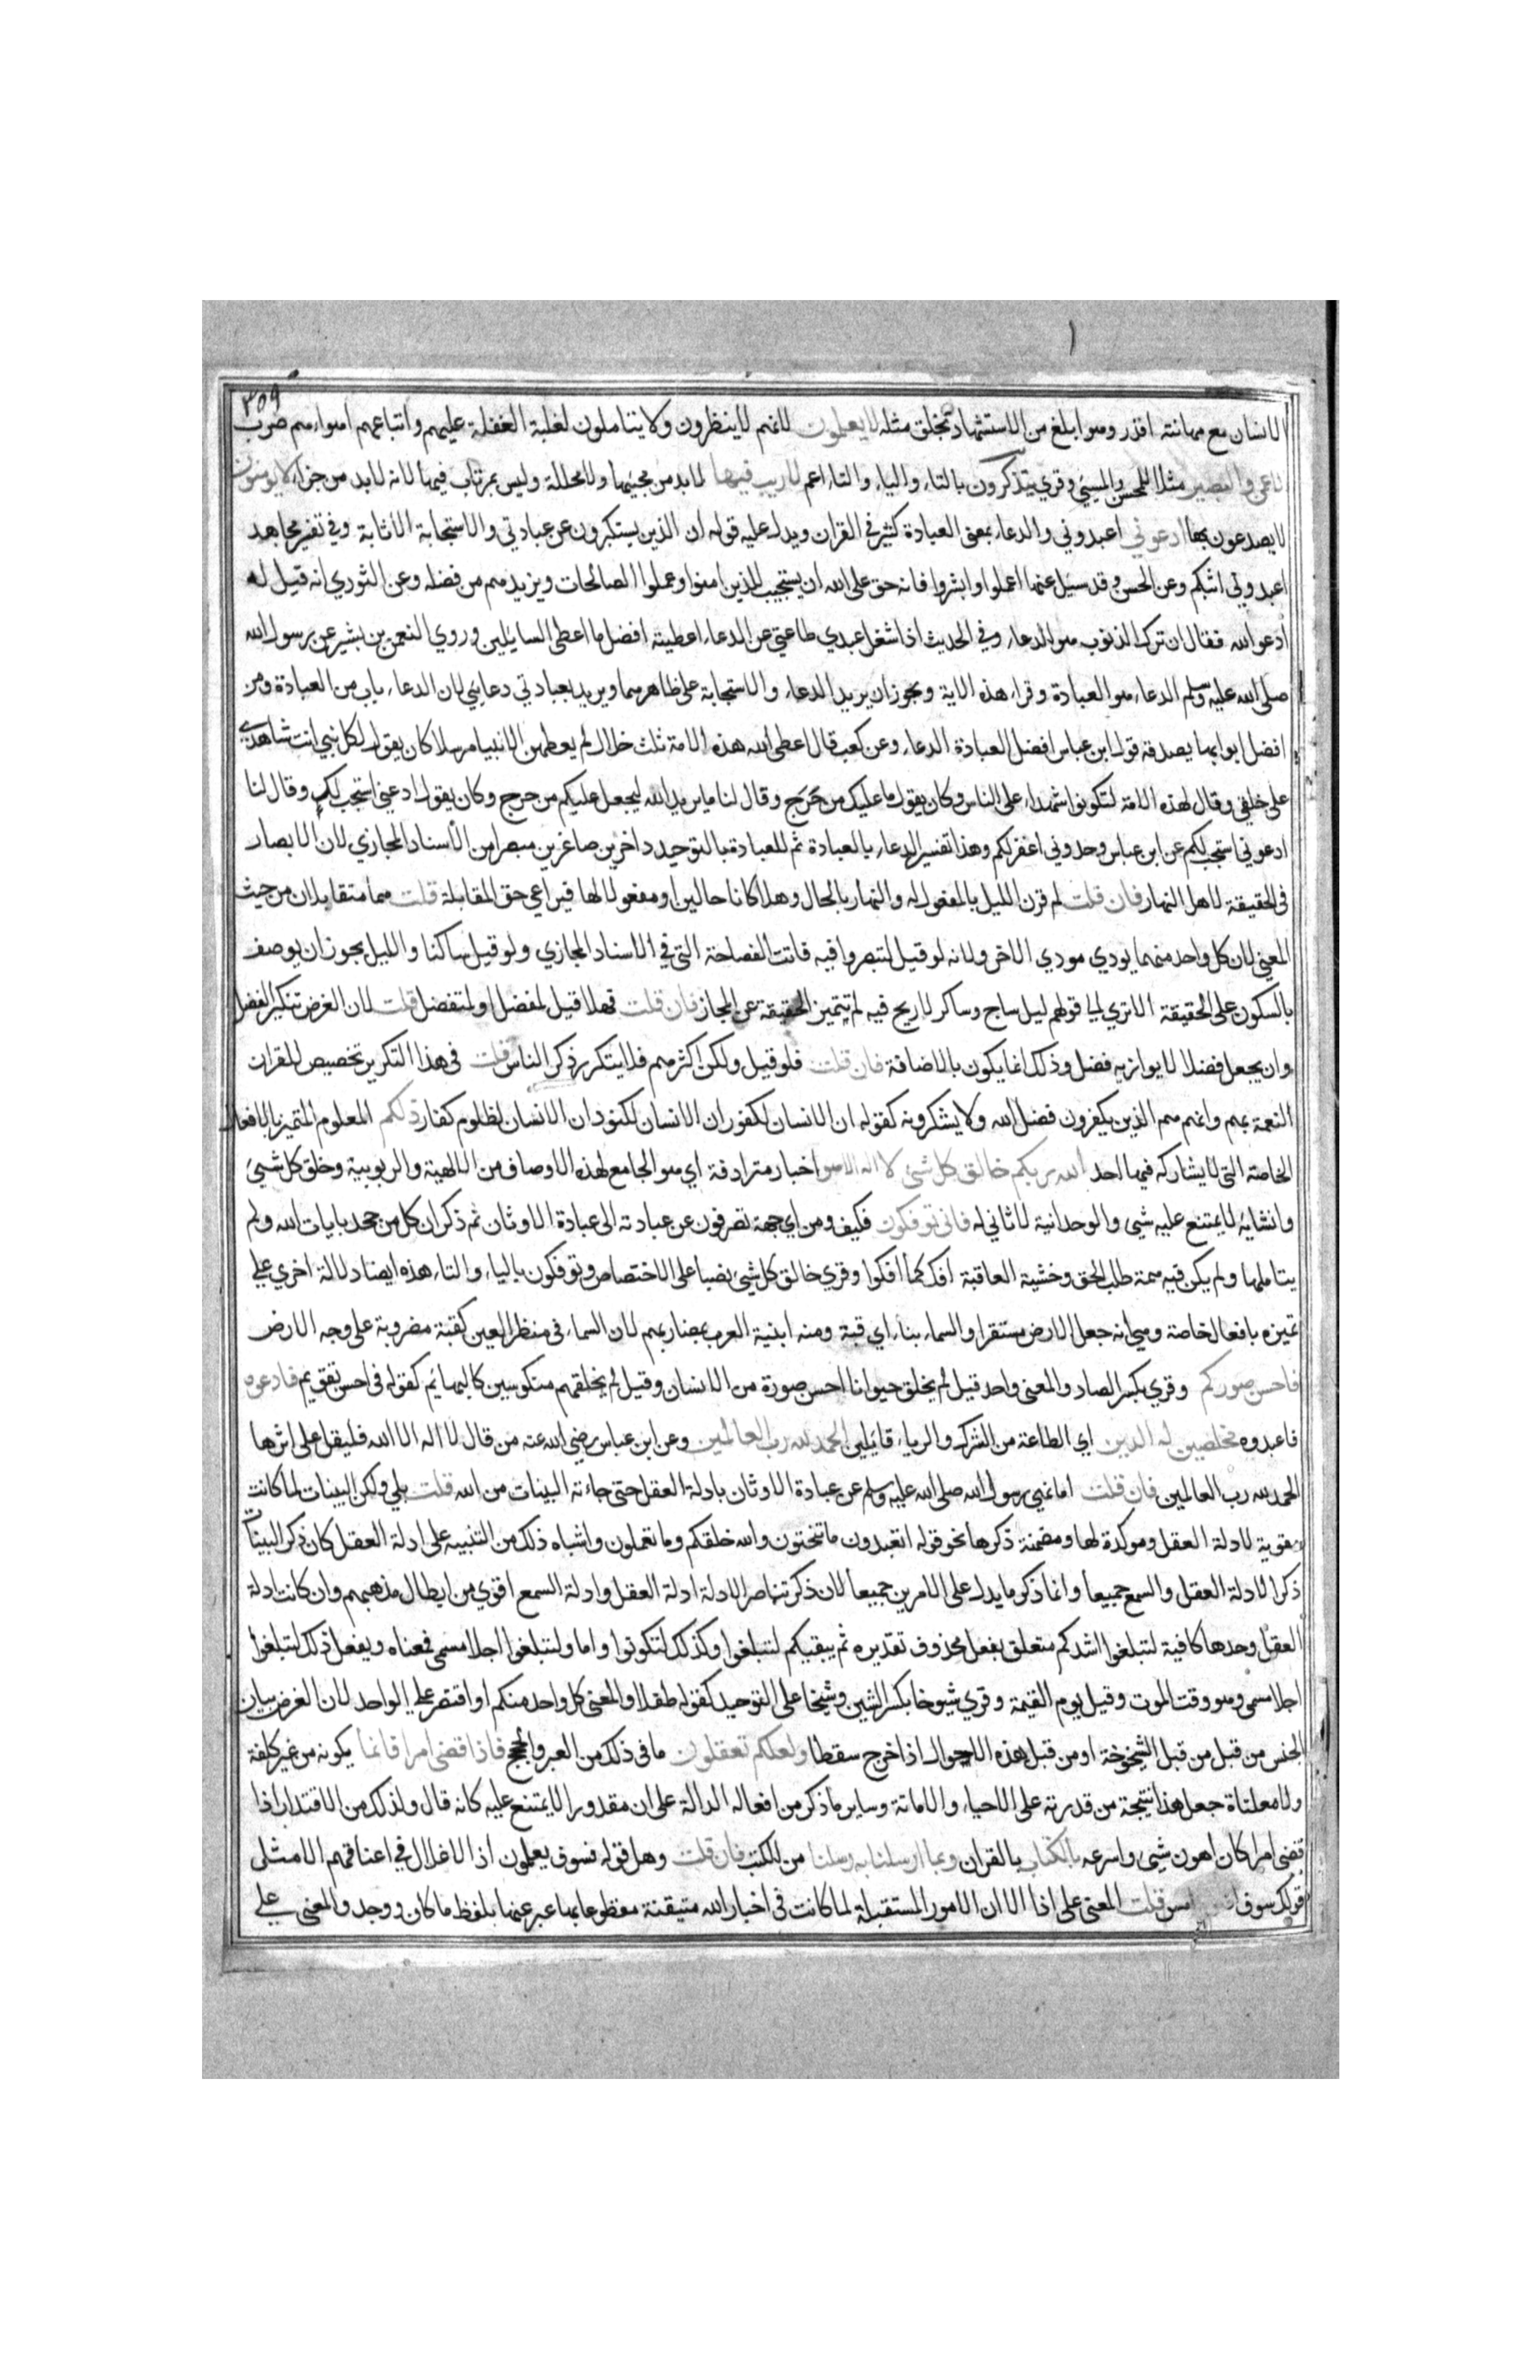 ٣٥٩
الانسان مع مهانته اقدر وهو ابلغ من الاستشهاد بخلق مثله لا يعلمون لانهم لا ينظرون ولا يتاملون لغلبة الغفلة عليهم واتباعهم اهواءهم ضرب
الاعمى والبصير مثلا للمحسن والمسيئ وقري يتذكرون بالتاء والياء والتاء اعم لا ريب فيها لا بد من مجيئها ولا محالة وليس بمرتاب فيها لانه لا بد من جزاء لا يومنون
لا يصدقون بها ادعوني اعبدوني والدعاء بمعنى العبادة كثير في القران ويدل عليه قوله ان الذين يستكبرون عن عبادتي والاستجابة الاثابة وفي تفسير مجاهد
اعبدوني اثبكم وعن الحسن وقد سئل عنها اعملوا وابشروا فانه حق على الله ان يستجيب للذين امنوا وعملوا الصالحات ويزيدهم من فضله وعن الثوري انه قيل له
ادعو الله فقال ان ترك الذنوب هو الدعاء وفي الحديث اذا شغل عبدي طاعتي عن الدعاء اعطيته افضل ما اعطى السايلين وروي النعمن بن بشير عن رسول الله
صلى الله عليه وسلم الدعاء هو العبادة وقراء هذه الاية ويجوز ان يريد الدعاء والاستجابة على ظاهرهما ويريد بعبادتي دعايئ لان الدعاء باب من العبادة ومن
افضل ابوابها يصدقه قول ابن عباس افضل العبادة الدعاء وعن كعب قال اعطى الله هذه الامة ثلث خلال لم يعطهن الا نبيا مرسلا كان يقول لكل نبي انت شاهدي
على خلقي وقال لهذه الامة لتكونوا شهداء على الناس وكان يقول ما عليك من حرج وقال لنا ما يريد الله ليجعل عليكم من حرج وكان يقول ادعني استجب لك وقال لنا
ادعوني استجب لكم عن ابن عباس وحدوني اغفر لكم وهذا تفسير الدعاء بالعبادة ثم للعبادة بالتوحيد داخرين صاغرين مبصرا من الأسناد المجازي لان الابصار
في الحقيقة لاهل النهار فان قلت لم قرن الليل بالمفعول له والنهار بالحال وهلا كانا حالين او مفعولا لها فيراعي حق المقابلة قلت هما متقابلان من حيث
المعنى لان كل واحد منهما يودي مودي الاخر ولانه لو قيل لتبصروا فيه فاتت الفصاحة التى في الاسناد المجازي ولو قيل ساكنا والليل يجوز ان يوصف
بالسكون على الحقيقة الا تري الي قولهم ليل ساج وساكن لا ريح فيه لم تتميز الحقيقة عن المجاز فان قلت فهلا قيل لمفضل او لمتفضل قلت لان الغرض تنكير الفضل
وان يجعل فضلا لا يوازيه فضل وذلك انما يكون بالاضافة فان قلت فلو قيل ولكن اكثرهم فلا يتكرر ذكر الناس قلت فى هذا التكرير تخصيص للقران
النعمة بهم وانهم هم الذين يكفرون فضل الله ولا يشكرونه كقوله ان الانسان لكفور ان الانسان لكنود ان الانسان لظلوم كفار ذلكم المعلوم المتميز بالافعال
الخاصة التي لا يشاركه فيها احد الله ربكم خالق كل شئ لا اله الا هو اخبار مترادفة اي هو الجامع لهذه الاوصاف من الالهية والربوبية وخلق كل شيئ
وانشايه لا يمتنع عليه شي والوحدانية لا ثاني له فانى توفكون فكيف ومن اي جهة تصرفون عن عبادته الى عبادة الاوثان ثم ذكر ان كل من جحد بايات الله ولم
يتاملها ولم يكن فيه همة طلب الحق وخشية العاقبة افك كما افكوا وقري خالق كل شيئ نصبا على الاختصاص وتوفكون بالياء والتاء هذه ايضا دلالة اخري علي
تميزه بافعال خاصة وهي انه جعل الارض مستقرا والسماء بناء اي قبة ومنه ابنية العرب لمضاربهم لان السماء في منظر العين كقبة مضروبة على وجه الارض
فاحسن صوركم وقري بكسر الصاد والمعنى واحد قيل لم يخلق حيوانا احسن صورة من الانسان وقيل لم يخلقهم منكوسين كالبهائم كقوله فى احسن تقويم فادعوه
فاعبدوه مخلصين له الدين اي الطاعة من الشرك والرياء قائيلين الحمد لله رب العالمين وعن ابن عباس رضي الله عنه من قال لا اله الا الله فليقل على اثرها
الحمد لله رب العالمين فان قلت اما نهي رسول الله صلى الله عليه وسلم عن عبادة الاوثان بادلة العقل حتى جاءته البينات من الله قلت بلي ولكن البينات لما كانت
مقوية لادلة العقل وموكدة لها ومضمنة ذكرها نحو قوله اتعبدون ما تنحتون والله خلقكم وما تعملون واشباه ذلك من التنبيه على ادلة العقل كان ذكر البينات
ذكرا لادلة العقل والسمع جميعا وانما ذكر ما يدل على الامرين جميعا لان ذكر تناصر الادلة ادلة العقل وادلة السمع اقوي من ابطال مذهبهم وان كانت ادلة
العقل وحدها كافية لتبلغوا اشدكم متعلق بفعل محذوف تقديره ثم يبقيكم لتبلغوا وكذلك لتكونوا واما ولتبلغوا اجلا مسمى فمعناه ويفعل ذلك لتبلغوا
اجلا مسمى وهو وقت الموت وقيل يوم القيمة وقري شيوخا بكسر الشين وشيخا على التوحيد كقوله طفلا والمعنى كل واحد منكم او اقتصر علي الواحد لان الغرض بيان
الجنس من قبل من قبل الشيخوخة او من قبل هذه الاحوال اذا خرج سقطا ولعلكم تعقلون ما فى ذلك من العبر والحجج فاذا قضى امرا فانما يكونه من غير كلفة
ولا معاناة جعل هذا نتيجة من قدرته على الاحياء والاماتة وساير ما ذكر من افعاله الدالة على ان مقدورا لا يمتنع عليه كانه قال ولذلك من الاقتدار اذا
قضى امرا كان اهون شيى واسرعه بالكتاب بالقران وبما ارسلنا به رسلنا من الكتب فان قلت وهل قوله فسوف يعلمون اذ الاغلال في اعناقهم الا مثل
قولك سوف امس قلت المعنى على اذا الا ان الامور المستقبلة لما كانت فى اخبار الله متيقنة مقطوعا بها عبر عنها بلفظ ما كان ووجد والمعنى علي